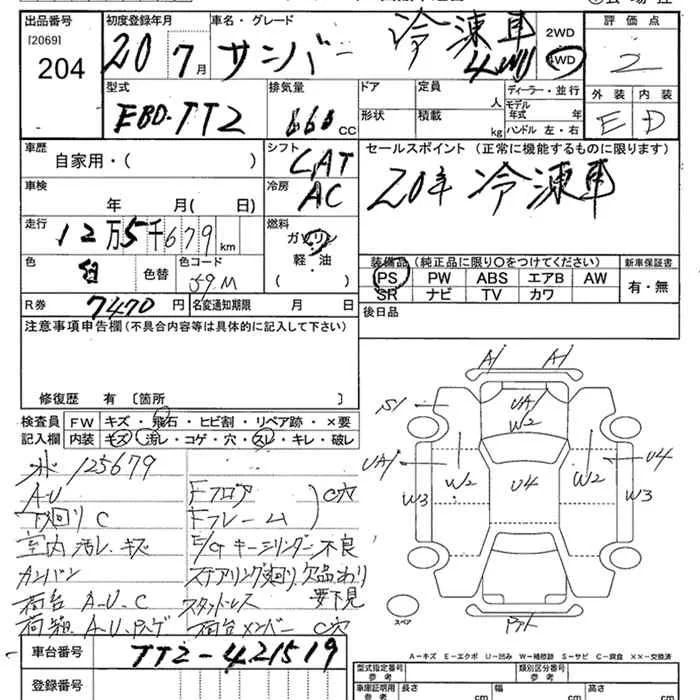 出品番号 初度登録年月 車名・グレード 評価点
[2069]
204
20 7月 サンバー 冷凍車 4WD
2WD
4WD
2
型式 排気量 ドア 定員 人 ディーラー・並行 外装 内装
EBD-TT2 660 CC 形状 積載 kg モデル年式 年 ハンドル 左・右 E D
車歴 シフト セールスポイント(正常に機能するものに限ります)
自家用・( ) CAT
20年 冷凍車
車検 冷房
年 月( 日) AC
走行 燃料
12万5千679 km ガソリン
軽・油
( )
色 色替 色コード
白 59M
装備品(純正品に限り○をつけてください) 新車保証書
PS PW ABS エアB AW 有・無
SR ナビ TV カワ
R券 7470円 名変通知期限 月 日
後日品
注意事項申告欄(不具合内容等は具体的に記入して下さい)
修復歴 有 〔箇所 〕
検査員 FW キズ・飛石・ヒビ割・リペア跡・×要
記入欄 内装 キズ・汚レ・コゲ・穴・スレ・キレ・破レ
125679
A.U Fフロア C穴
下回りC Fフレーム
室内汚レ、キズ E/Gキーシリンダー不良
カンバン ステアリング廻り欠品わり
要下見
荷台 A.U.C スタットレス
荷箱 A.U.Pハゲ 荷台メンバー C穴
A1 A1
S1 UA1
W2
UA1 W2 U4 W2 U4
W3 W3
スペア
A−キズ E−エクボ U−凹み W−補修跡 S−サビ C−腐食 ××−交換済
車台番号 TT2-421519
登録番号
型式指定番号 参考 類別区分番号 参考
車庫証明用 参考 長さ cm 幅 cm 高さ cm